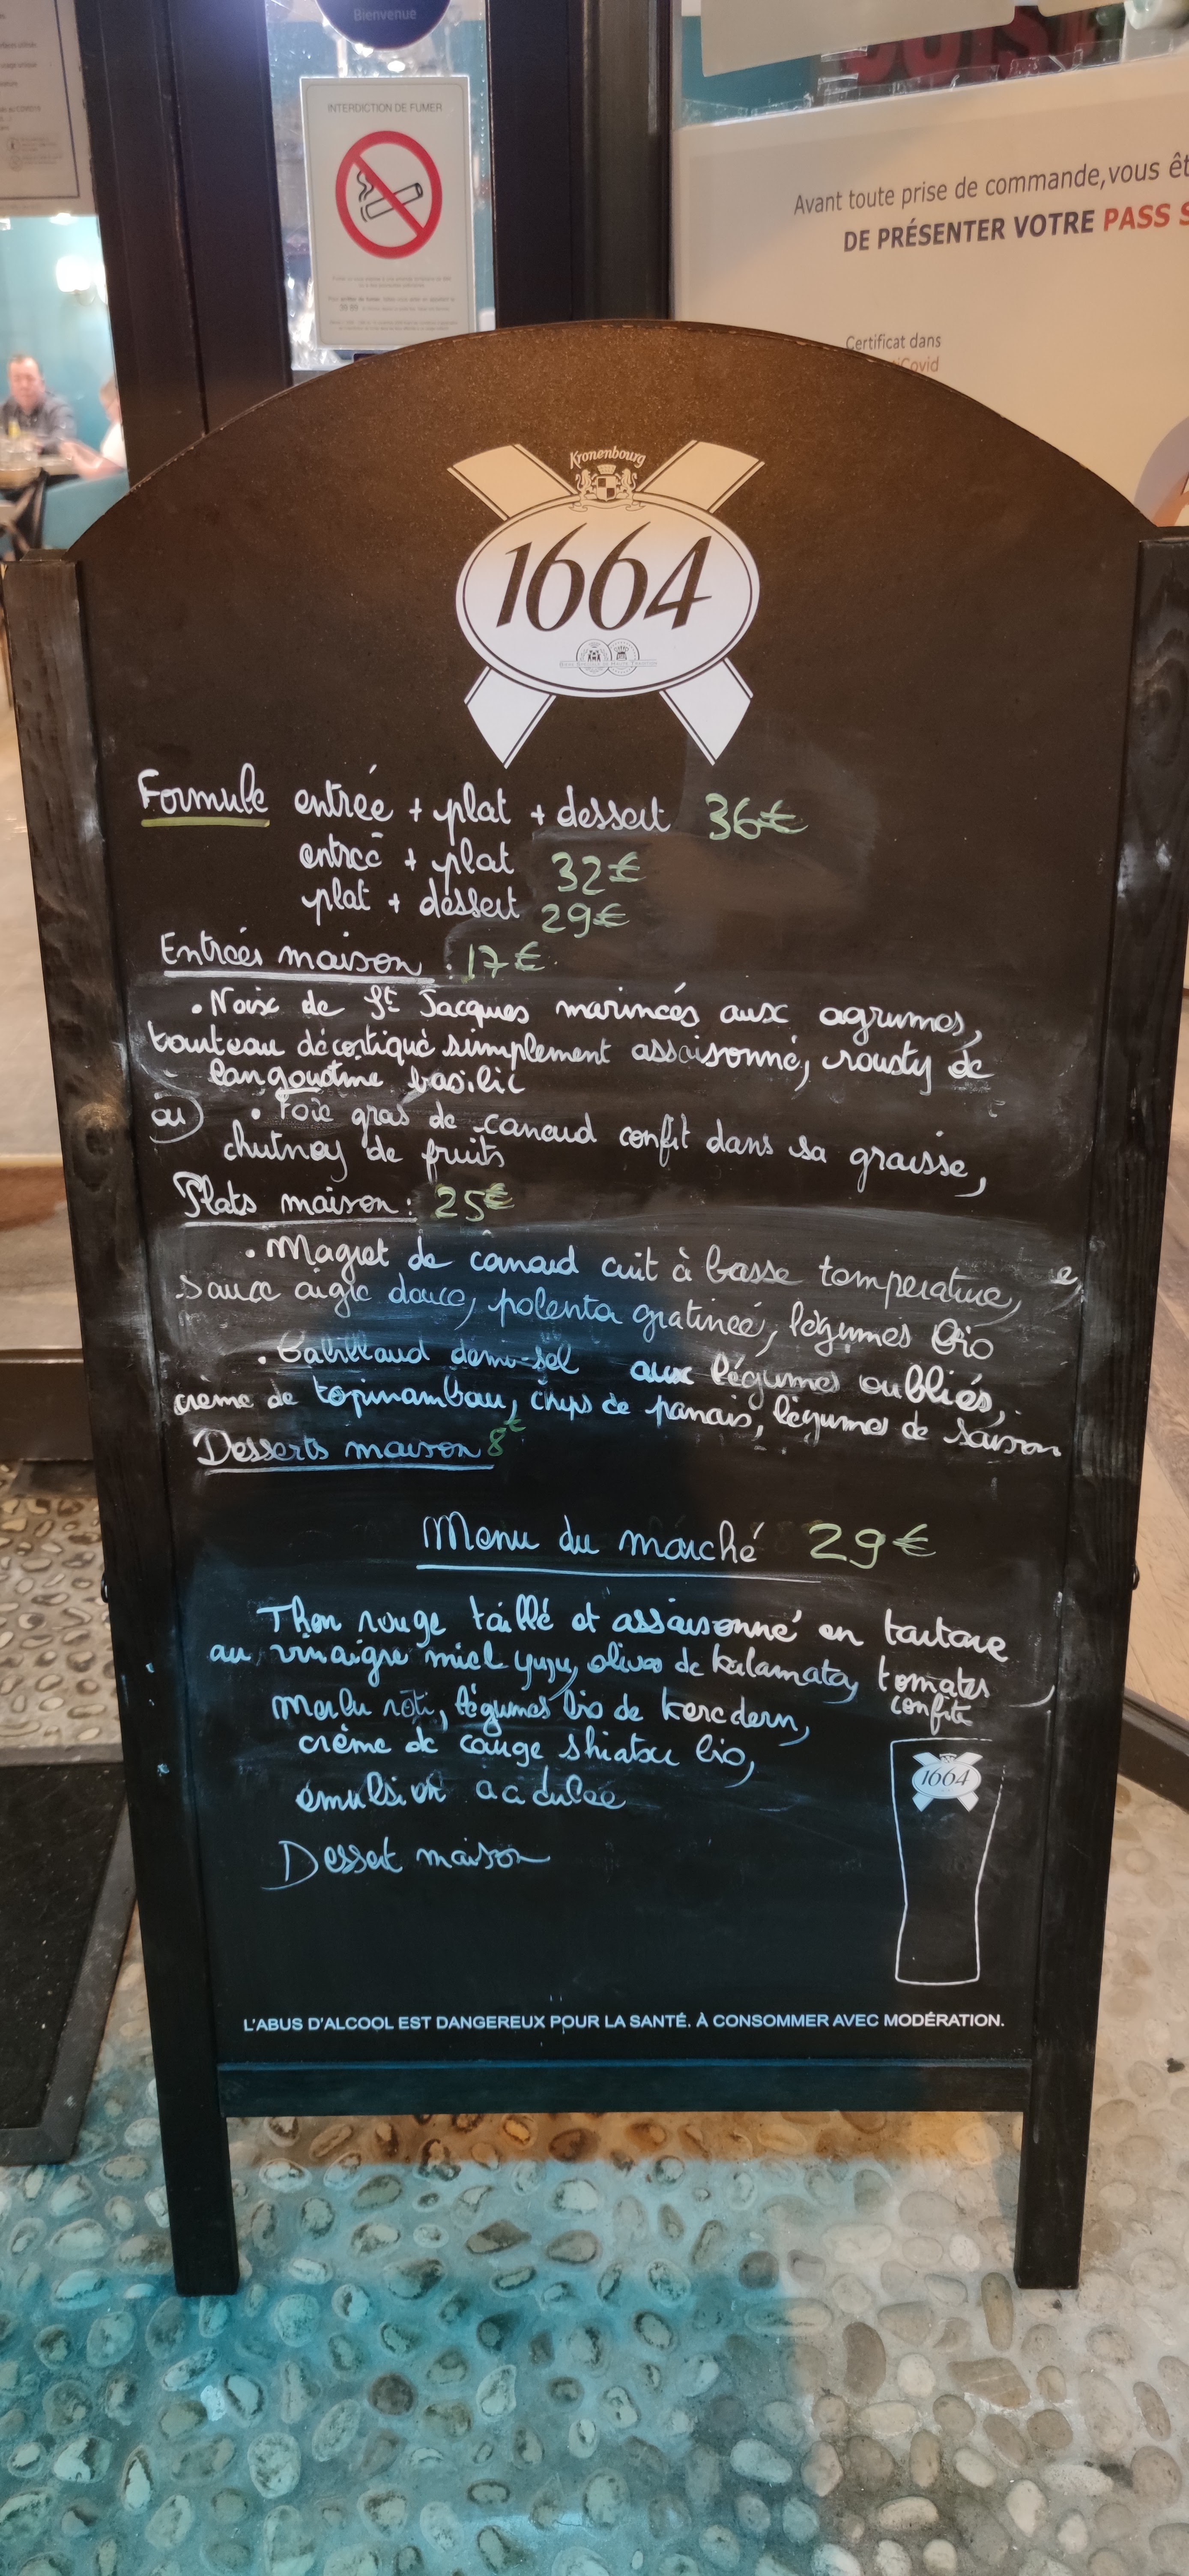 Bienvenue
INTERDICTION DE FUMER
Avant toute prise de commande, vous êt
DE PRÉSENTER VOTRE PASS S
Certificat dans
Covid
Kronenbourg
1664
Formule entrée + plat + dessert 36€
entrée + plat 32€
plat + dessert 29€
Entrées maison : 17€
• Noix de St Jacques marinées aux agrumes,
tourteau décortiqué simplement assaisonné, rousty de
langoustine basilic
ou • Foie gras de canard confit dans sa graisse,
chutney de fruits
Plats maison : 25€
• Magret de canard cuit à basse temperature,
sauce aigre douce, polenta gratinée, légumes bio
• Cabillaud demi-sel aux légumes oubliés,
crème de topinambour, chips de panais, légumes de saison
Desserts maison 8€
Menu du marché 29€
Thon rouge taillé et assaisonné en tartare
au vinaigre miel yuzu, olives de kalamata, tomates
confite
Merlu rôti, légumes bio de
crème de courge shiatsu bio,
émulsion acidulée
Dessert maison
1664
L'ABUS D'ALCOOL EST DANGEREUX POUR LA SANTÉ. À CONSOMMER AVEC MODÉRATION.